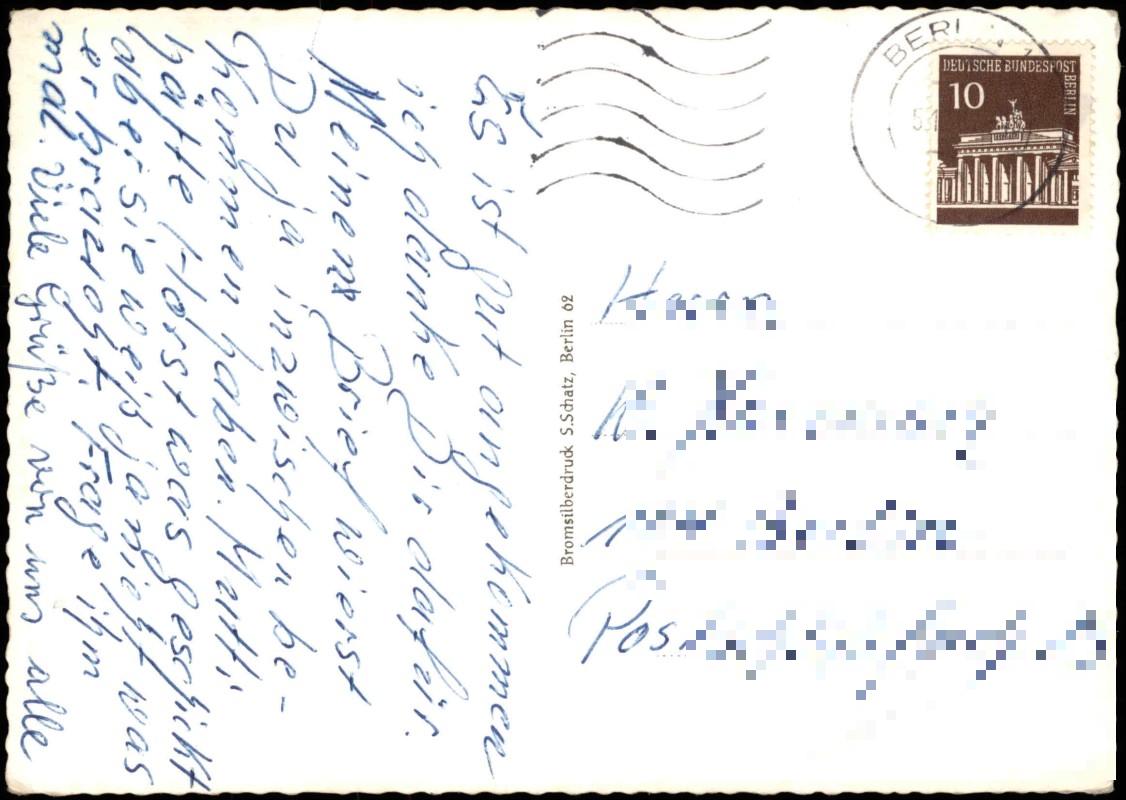 Es ist gut angekommen
ich danke Dir dafür.
Meinen Brief wirst
Du ja inzwischen be-
kommen haben. Mutti
hätte Horst was geschickt
aber sie weiß ja nicht was
er braucht. Frage ihn
mal. Viele Grüße von uns alle
Bromsilberdruck S.Schatz, Berlin 62
BERLI
DEUTSCHE BUNDESPOST
BERLIN
10
Herrn